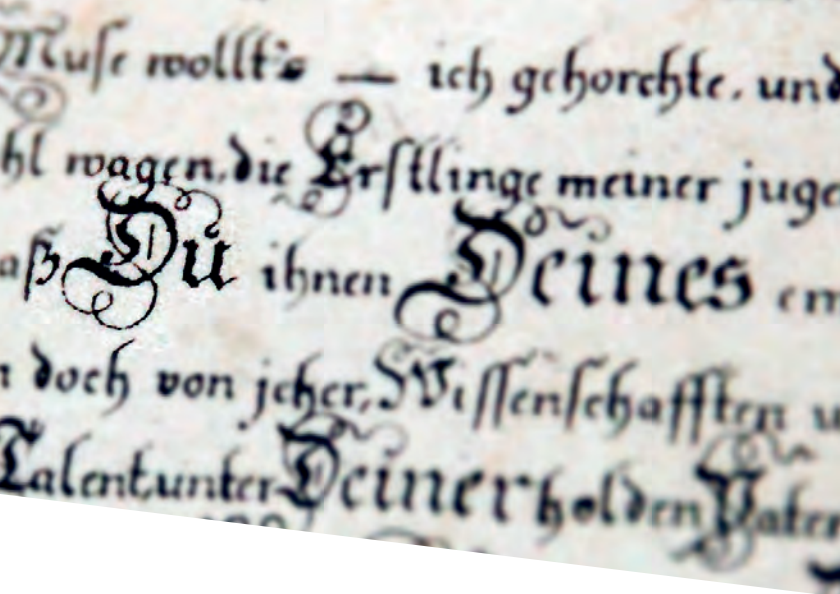 Muſe wollt's — ich gehorchte, und
hl wagen, die Erſtlinge meiner juge
aß Du ihnen Deines em
n doch von jeher, Wiſſenſchafften u
Talent, unter Deiner holden Vater